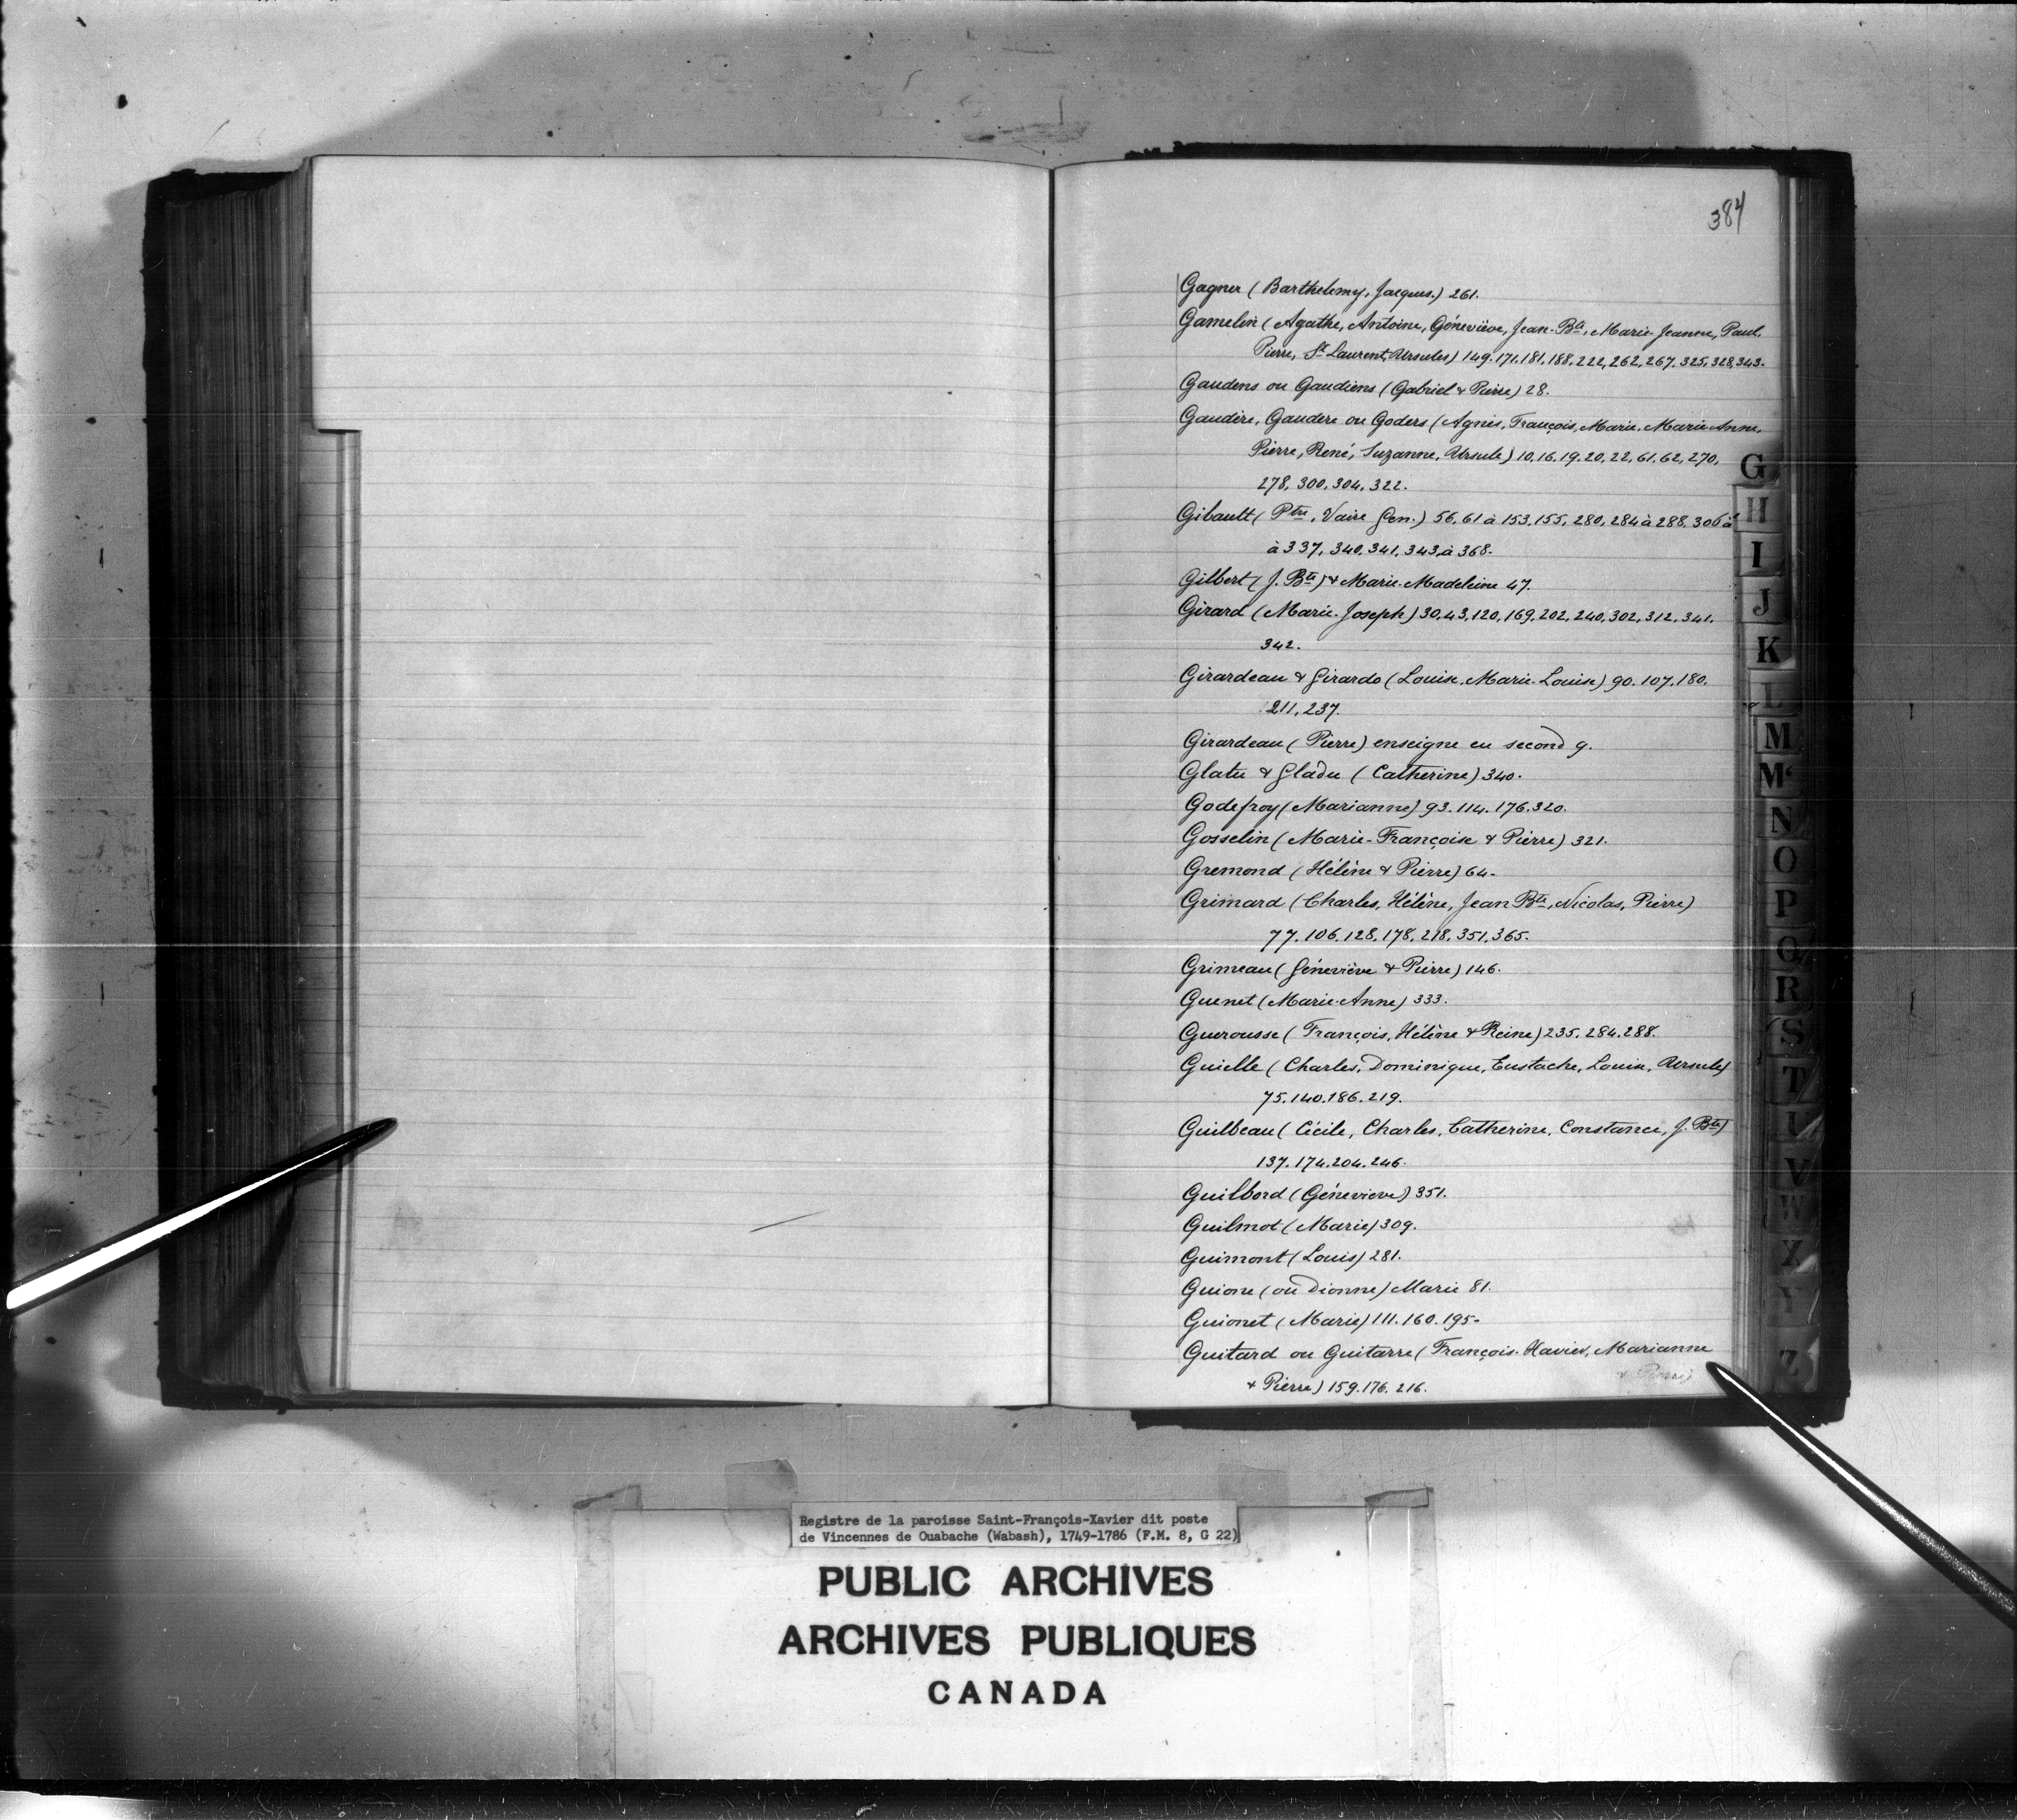 384
Gagner (Barthelemy, Jacques.) 261.
Gamelin (Agathe, Antoine, Géneviève, Jean-Bte, Marie-Jeanne, Paul.
Pierre, St Laurent, Ursules) 149.171.181.188.222,262,267.325,328,343.
Gaudens ou Gaudiens (Gabriel & Pierre) 28.
Gaudère, Gaudere ou Goders (Agnès, François, Marie, Marie-Anne,
Pierre, René, Suzanne, Ursule) 10.16.19.20.22,61.62,270,
278, 300,304,322.
Gibault (Ptre, Vaire Gen.) 56.61 à 153.155, 280, 284 à 288. 306 à
à 337, 340.341.343 à 368.
Gilbert (J. Bte) & Marie-Madeleine 47.
Girard (Marie-Joseph) 30,43,120,169,202,240,302,312,341.
342.
Girardeau & Girardo (Louise, Marie-Louise) 90.107.180.
211,237.
Girardeau (Pierre) enseigne en second 9.
Glatu & Gladu (Catherine) 340.
Godefroy (Marianne) 93.114.176.320.
Gosselin (Marie-Françoise & Pierre) 321.
Gremond (Hélène & Pierre) 64.
Grimard (Charles, Hélène, Jean Bte, Nicolas, Pierre)
77.106.128.178.218.351.365.
Grimeau (Géneviève & Pierre) 146.
Guenet (Marie-Anne) 333.
Guerousse (François, Hélène & Reine) 235.284.288.
Guielle (Charles, Dominique, Eustache, Louise, Ursule)
75.140.186.219.
Guilbeau (Cécile, Charles, Catherine, Constance, J. Bte)
137.174.204.246.
Guilbord (Génevieve) 351.
Guilmot (Marie) 309.
Guimont (Louis) 281.
Guione (ou Dionne) Marie 81.
Guionet (Marie) 111.160.195.
Guitard ou Guitarre (François-Xavier, Marianne
& Pierre) 159.176.216.
G
H
I
J
K
L
M
Mc
N
O
P
Q
R
S
T
U
V
W
X
Y
Z
Registre de la paroisse Saint-François-Xavier dit poste
de Vincennes de Ouabache (Wabash), 1749-1786 (F.M. 8, G 22)
PUBLIC ARCHIVES
ARCHIVES PUBLIQUES
CANADA